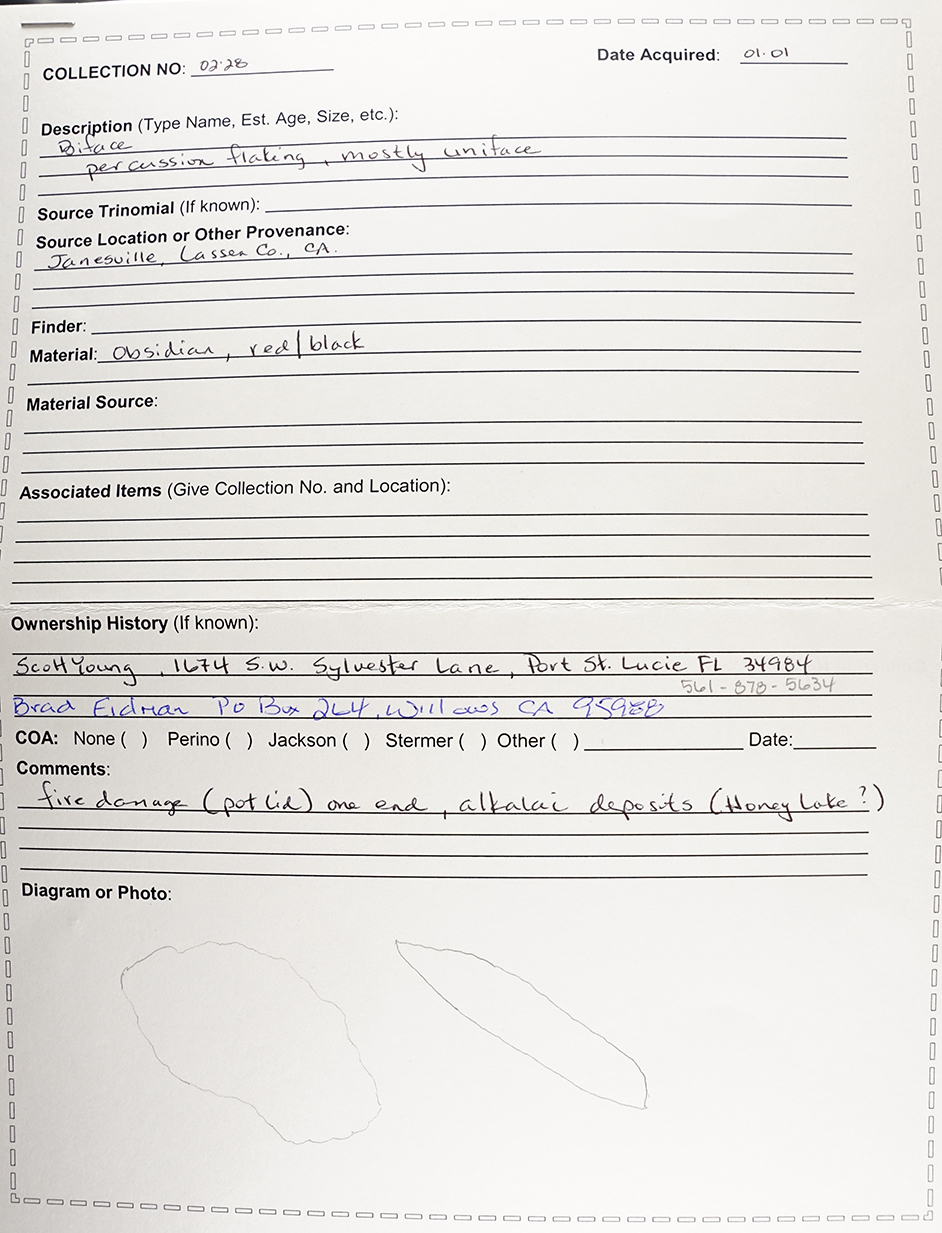 COLLECTION NO: 02·28
Date Acquired: 01·01
Description (Type Name, Est. Age, Size, etc.):
Biface
percussion flaking, mostly uniface
Source Trinomial (If known):
Source Location or Other Provenance:
Janesville, Lassen Co., CA.
Finder:
Material: Obsidian, red/black
Material Source:
Associated Items (Give Collection No. and Location):
Ownership History (If known):
Scott Young, 1674 S.W. Sylvester Lane, Port St. Lucie FL 34984
561-878-5634
Brad Eidman PO Box 264, Willows CA 95988
COA: None ( ) Perino ( ) Jackson ( ) Stermer ( ) Other ( ) Date:
Comments:
fire damage (pot lid) one end, alkalai deposits (Honey Lake?)
Diagram or Photo: